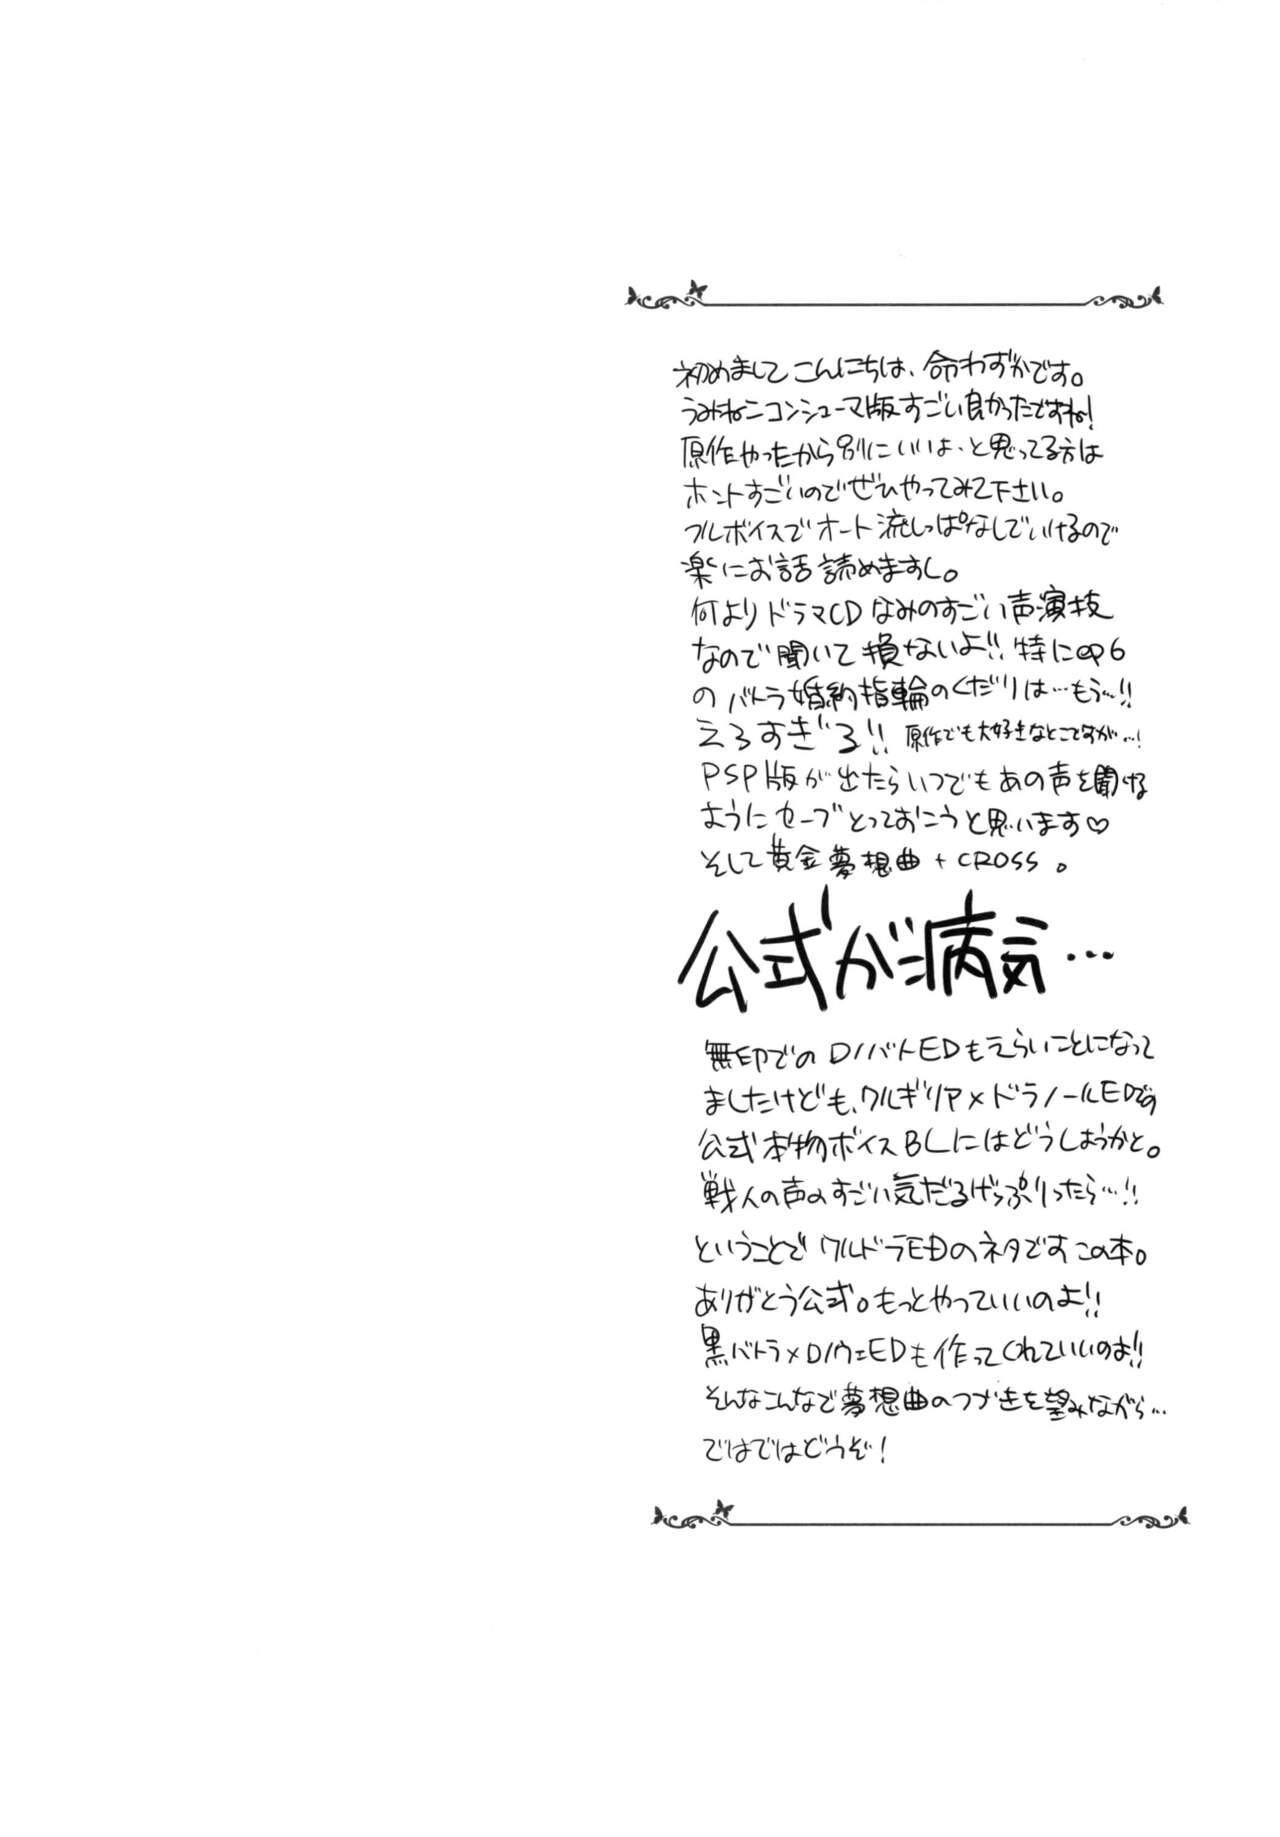 初めましてこんにちは、命わずかです。
うみねこコンシューマ版すごい良かったですね!
原作やったから別にいいよ、と思ってる方は
ホントすごいのでぜひやってみて下さい。
フルボイスでオート流しっぱなしでいけるので
楽にお話読めますし。
何よりドラマCDなみのすごい声演技
なので聞いて損ないよ!!特にep6
のバトラ婚約指輪のくだりは…もう…!!
えろすぎる!! 原作でも大好きなとこですが…!
PSP版が出たらいつでもあの声を聞ける
ようにセーブとっておこうと思います♡
そして黄金夢想曲+CROSS。
公式が病気…
無印でのロノバトEDもえらいことになって
ましたけども、ワルギリア×ドラノールEDでの
公式本物ボイスBLにはどうしようかと。
戦人の声のすごい気だるげっぷりったら…!!
ということでワルドラEDのネタですこの本。
ありがとう公式。もっとやっていいのよ!!
黒バトラ×ロノウェEDも作ってくれていいのよ!!
そんなこんなで夢想曲のつづきを望みながら…
ではではどうぞ!